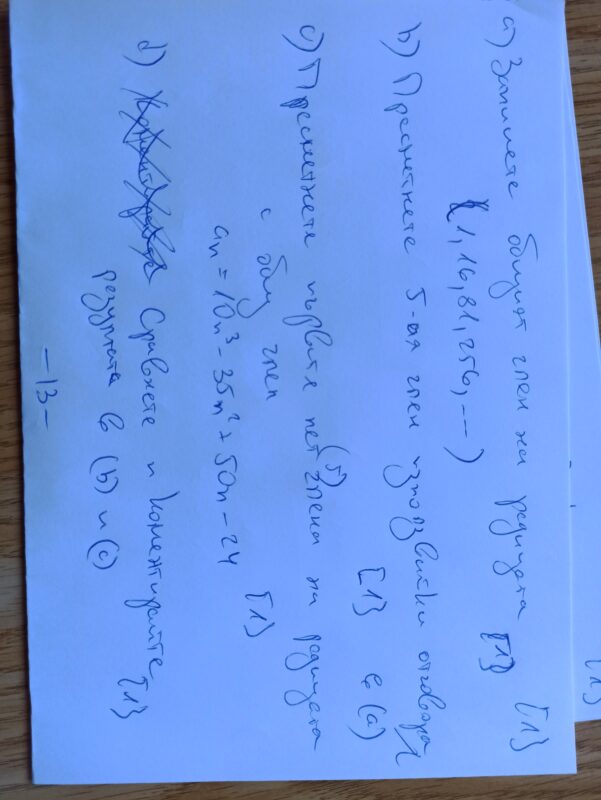 а) Запишете общият член на редицата [1]
(1, 16, 81, 256, ---) [1]
b) Пресметнете 5-ия член използвайки отговора
[1] в (a)
c) Пресметнете първите пет (5) члена на редицата
с общ член
an = 10n³ - 35n² + 50n - 24 [1]
d) Сравнете и коментирайте [1]
резултата в (b) и (c)
-13-
[1]